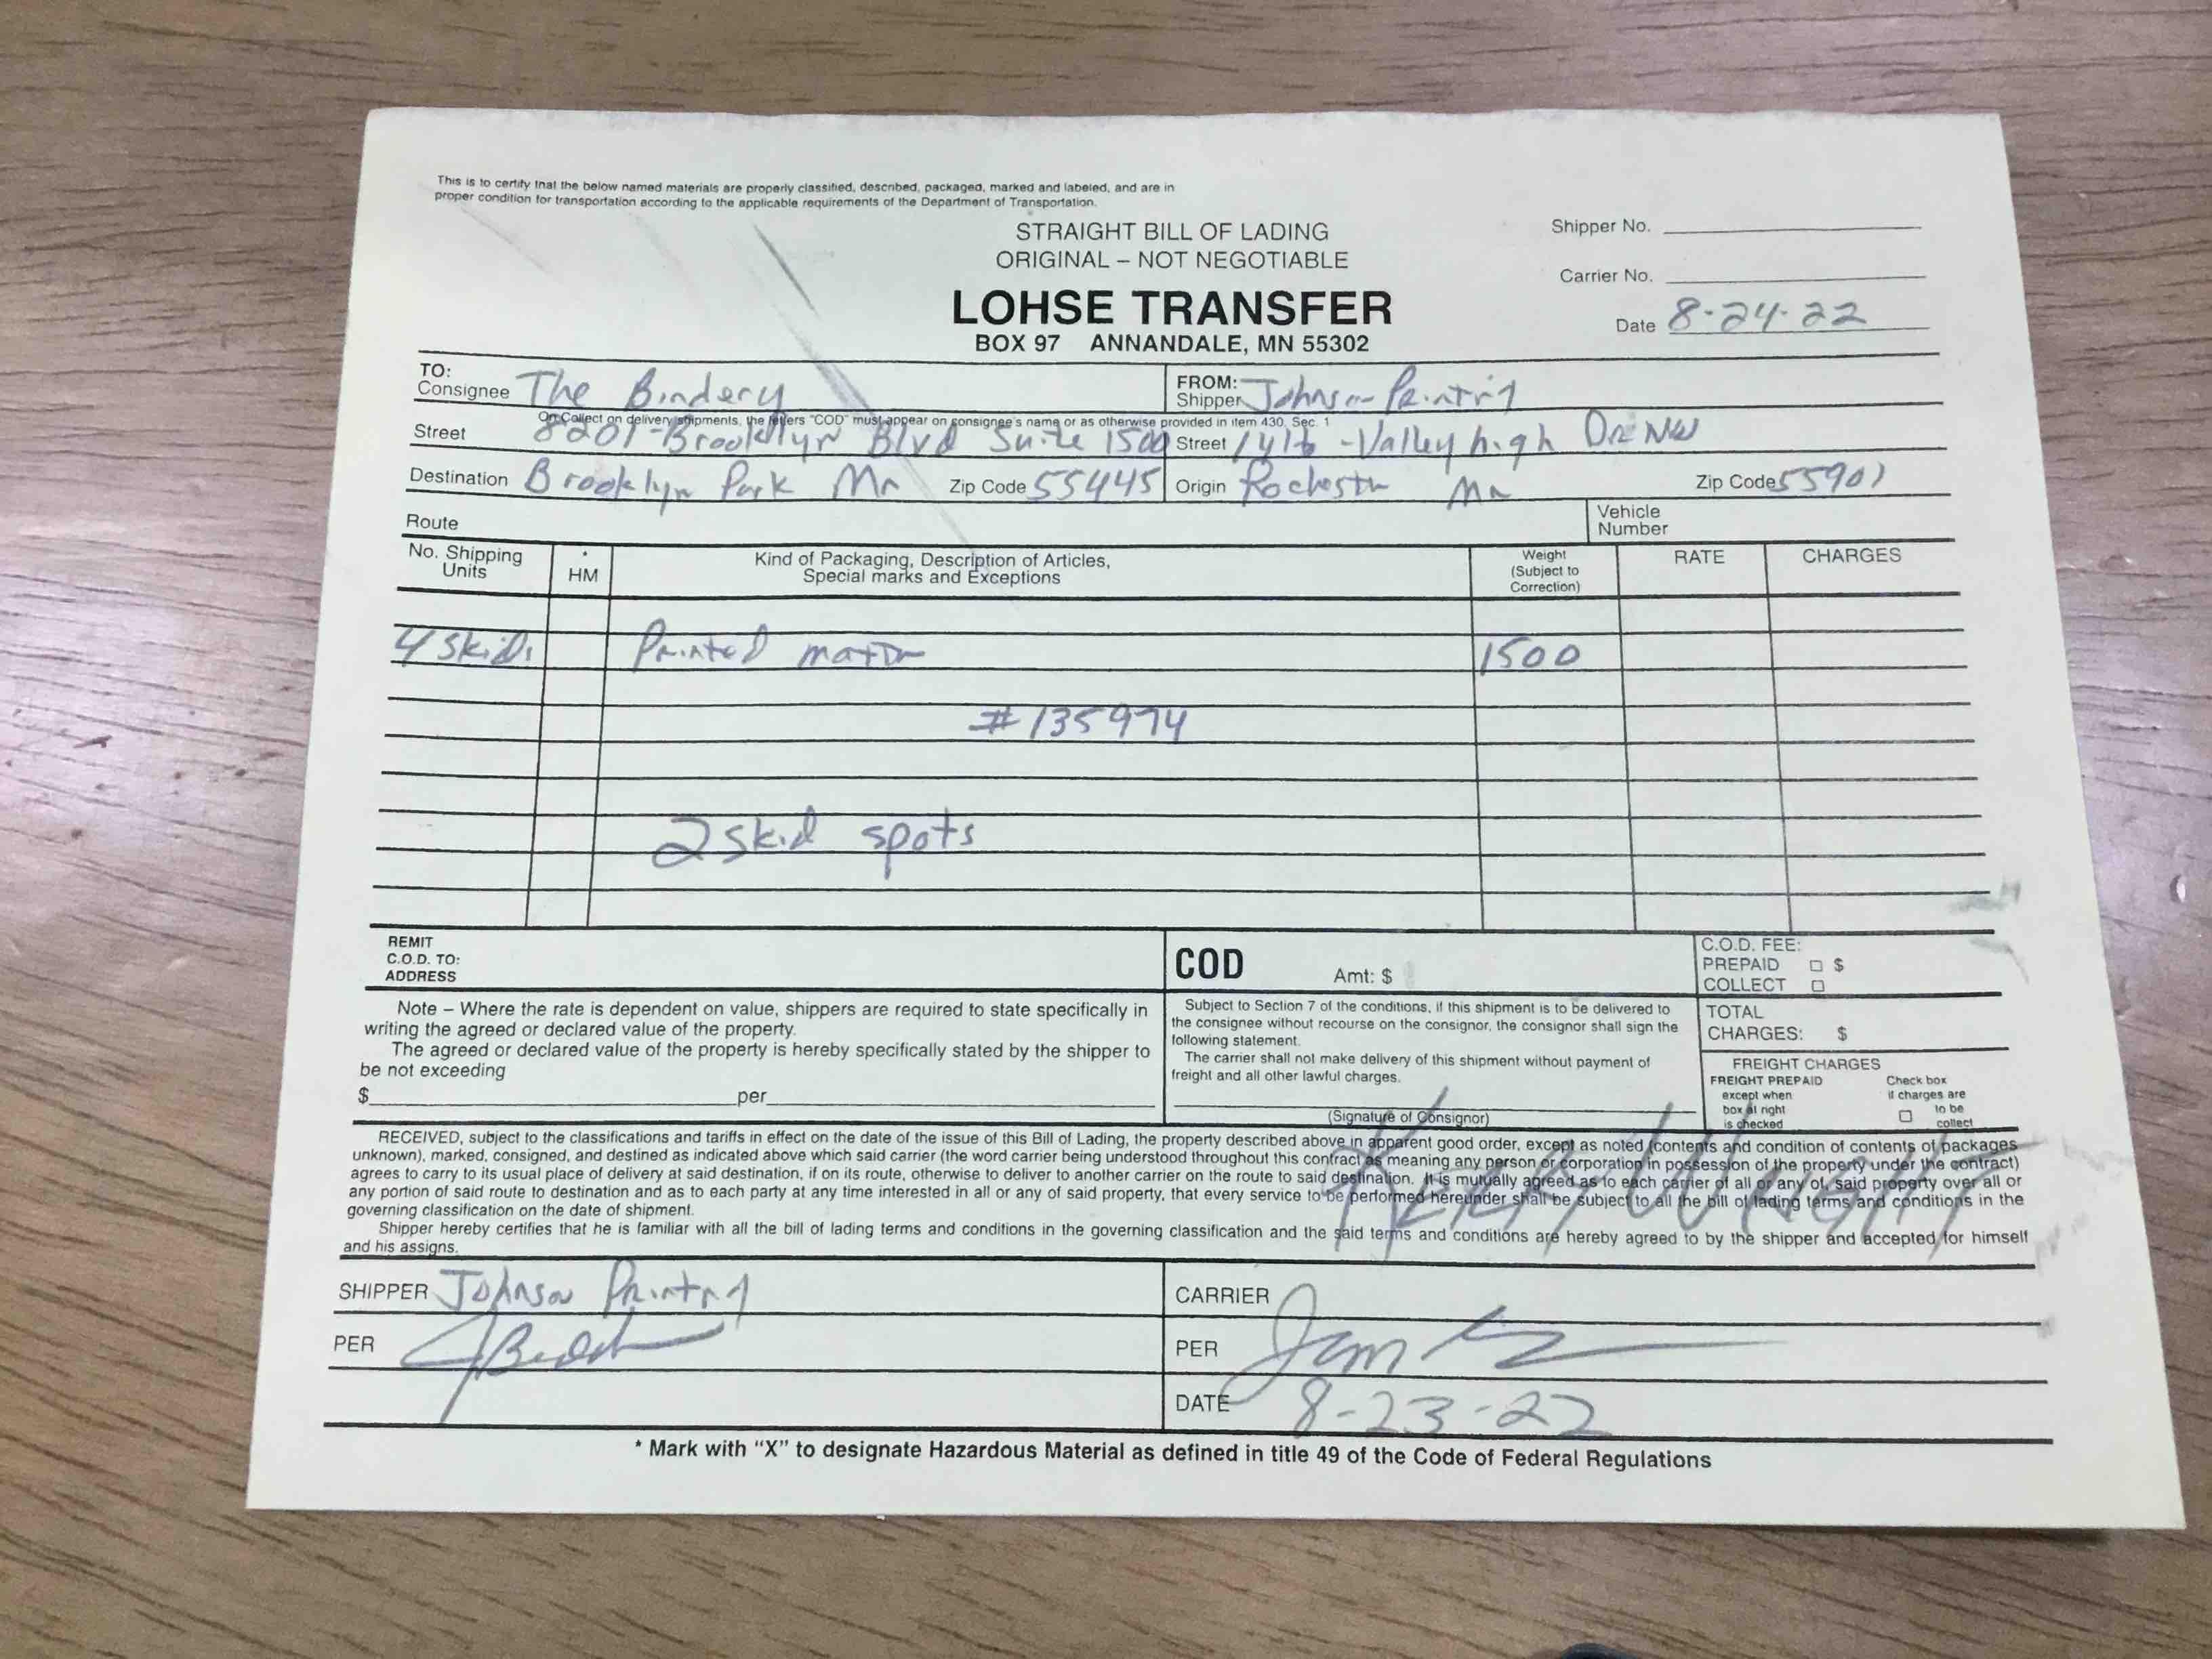 This is to certify that the below named materials are properly classified, described, packaged, marked and labeled, and are in
proper condition for transportation according to the applicable requirements of the Department of Transportation.
STRAIGHT BILL OF LADING
ORIGINAL – NOT NEGOTIABLE
LOHSE TRANSFER
BOX 97 ANNANDALE, MN 55302
Shipper No.
Carrier No.
Date 8-24-22
TO:
Consignee The Bindery
FROM:
Shipper Johnson Printing
On Collect on delivery shipments, the letters "COD" must appear on consignee's name or as otherwise provided in item 430, Sec. 1
Street 8201-Brooklyn Blvd Suite 1500 Street 1416-Valleyhigh Dr NW
Destination Brooklyn Park Mn Zip Code 55445 Origin Rochester Mn Zip Code 55901
Route
Vehicle
Number
No. Shipping
Units
*
HM
Kind of Packaging, Description of Articles,
Special marks and Exceptions
Weight
(Subject to
Correction)
RATE
CHARGES
4 Skids Printed matter 1500
#135974
2 skid spots
REMIT
C.O.D. TO:
ADDRESS
COD Amt: $
C.O.D. FEE:
PREPAID □ $
COLLECT □
Note – Where the rate is dependent on value, shippers are required to state specifically in
writing the agreed or declared value of the property.
The agreed or declared value of the property is hereby specifically stated by the shipper to
be not exceeding
$ per
Subject to Section 7 of the conditions, if this shipment is to be delivered to
the consignee without recourse on the consignor, the consignor shall sign the
following statement.
The carrier shall not make delivery of this shipment without payment of
freight and all other lawful charges.
(Signature of Consignor)
TOTAL
CHARGES: $
FREIGHT CHARGES
FREIGHT PREPAID
except when
box at right
is checked
Check box
if charges are
□ to be
collect
RECEIVED, subject to the classifications and tariffs in effect on the date of the issue of this Bill of Lading, the property described above in apparent good order, except as noted (contents and condition of contents of packages
unknown), marked, consigned, and destined as indicated above which said carrier (the word carrier being understood throughout this contract as meaning any person or corporation in possession of the property under the contract)
agrees to carry to its usual place of delivery at said destination, if on its route, otherwise to deliver to another carrier on the route to said destination. It is mutually agreed as to each carrier of all or any of, said property over all or
any portion of said route to destination and as to each party at any time interested in all or any of said property, that every service to be performed hereunder shall be subject to all the bill of lading terms and conditions in the
governing classification on the date of shipment.
Shipper hereby certifies that he is familiar with all the bill of lading terms and conditions in the governing classification and the said terms and conditions are hereby agreed to by the shipper and accepted for himself
and his assigns.
SHIPPER Johnson Printing
CARRIER
PER
PER
DATE 8-23-22
* Mark with "X" to designate Hazardous Material as defined in title 49 of the Code of Federal Regulations